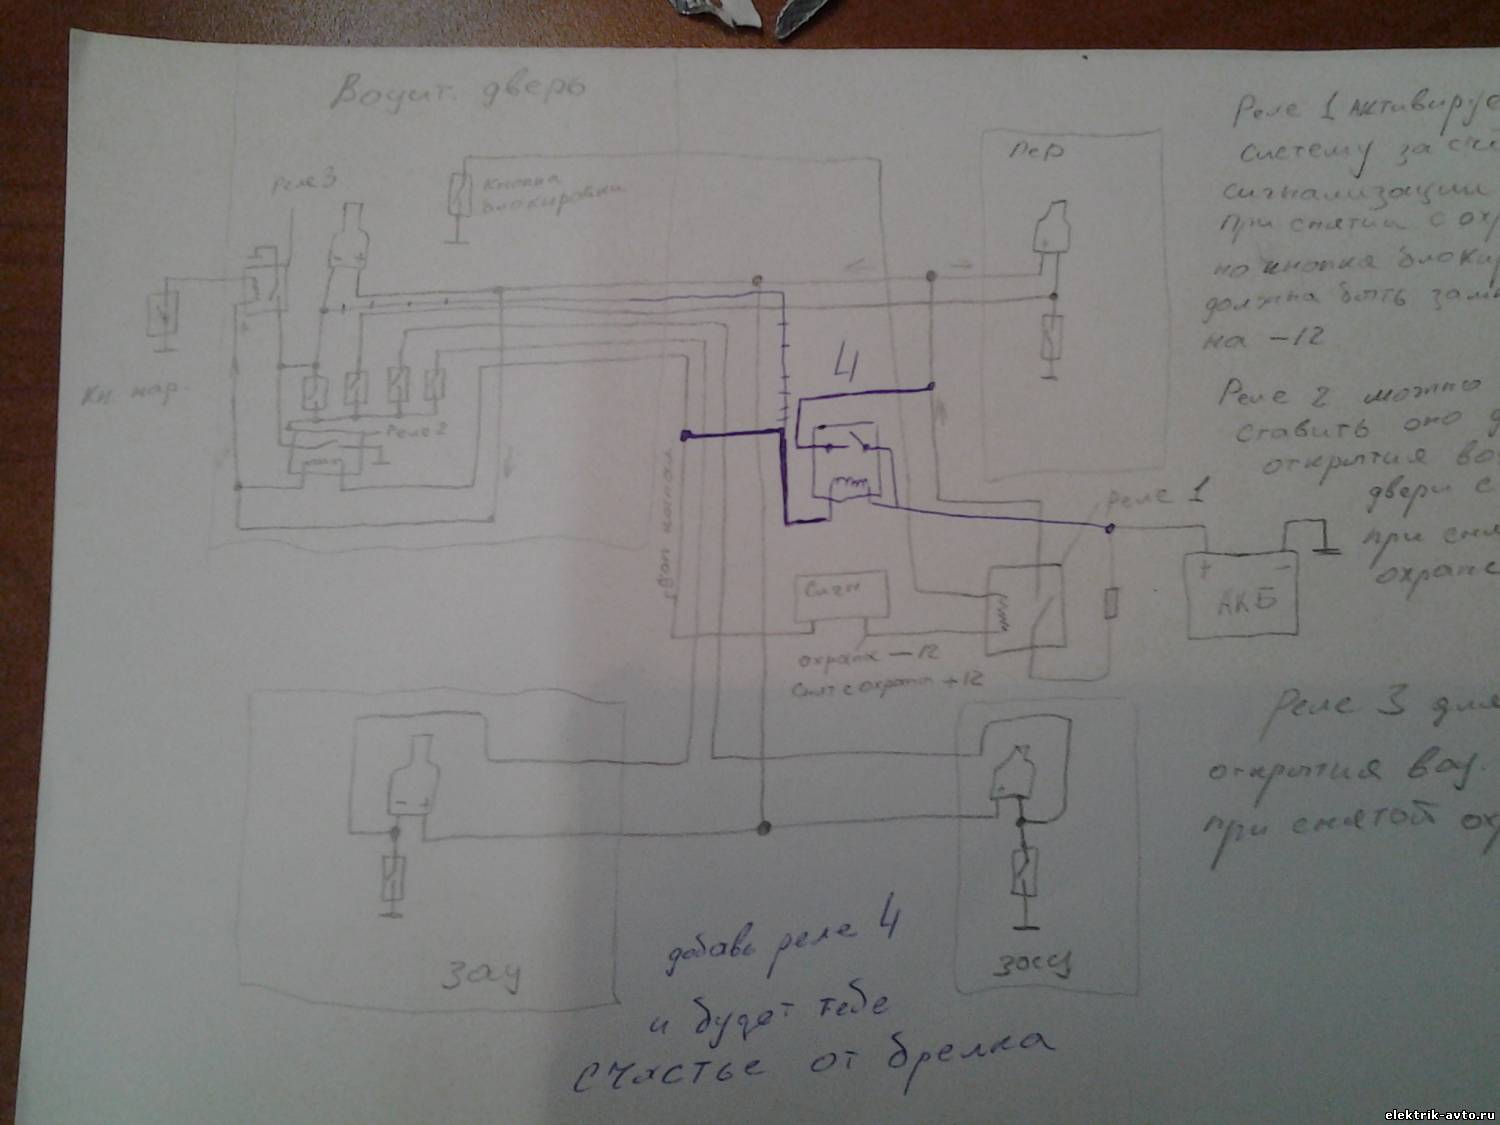 Водит. дверь
Реле 3
Кнопка
блокировки
пер
Кн нар.
Реле 2
4
Реле 1
доп канал
Сигн
охрана -12
Снят с охраны +12
+ -
АКБ
зау
добавь реле 4
и будет тебе
счастье от брелка
Реле 1 активируе
систему за счё
сигнализации
при снятии с ох
но кнопка блоки
должна быть зам
на -12
Реле 2 можно
ставить оно д
открытия во
двери с
при сня
охране
Реле 3 для
открытия вод.
при снятой ох
elektrik-avto.ru